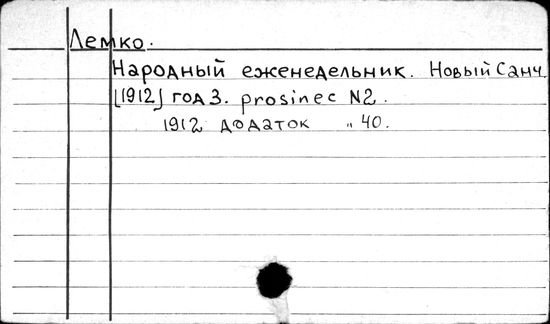 Лемко.
Народный еженедельник. Новый Санч.
[1912] год 3. prosinec N2.
1912 додаток „ 40.